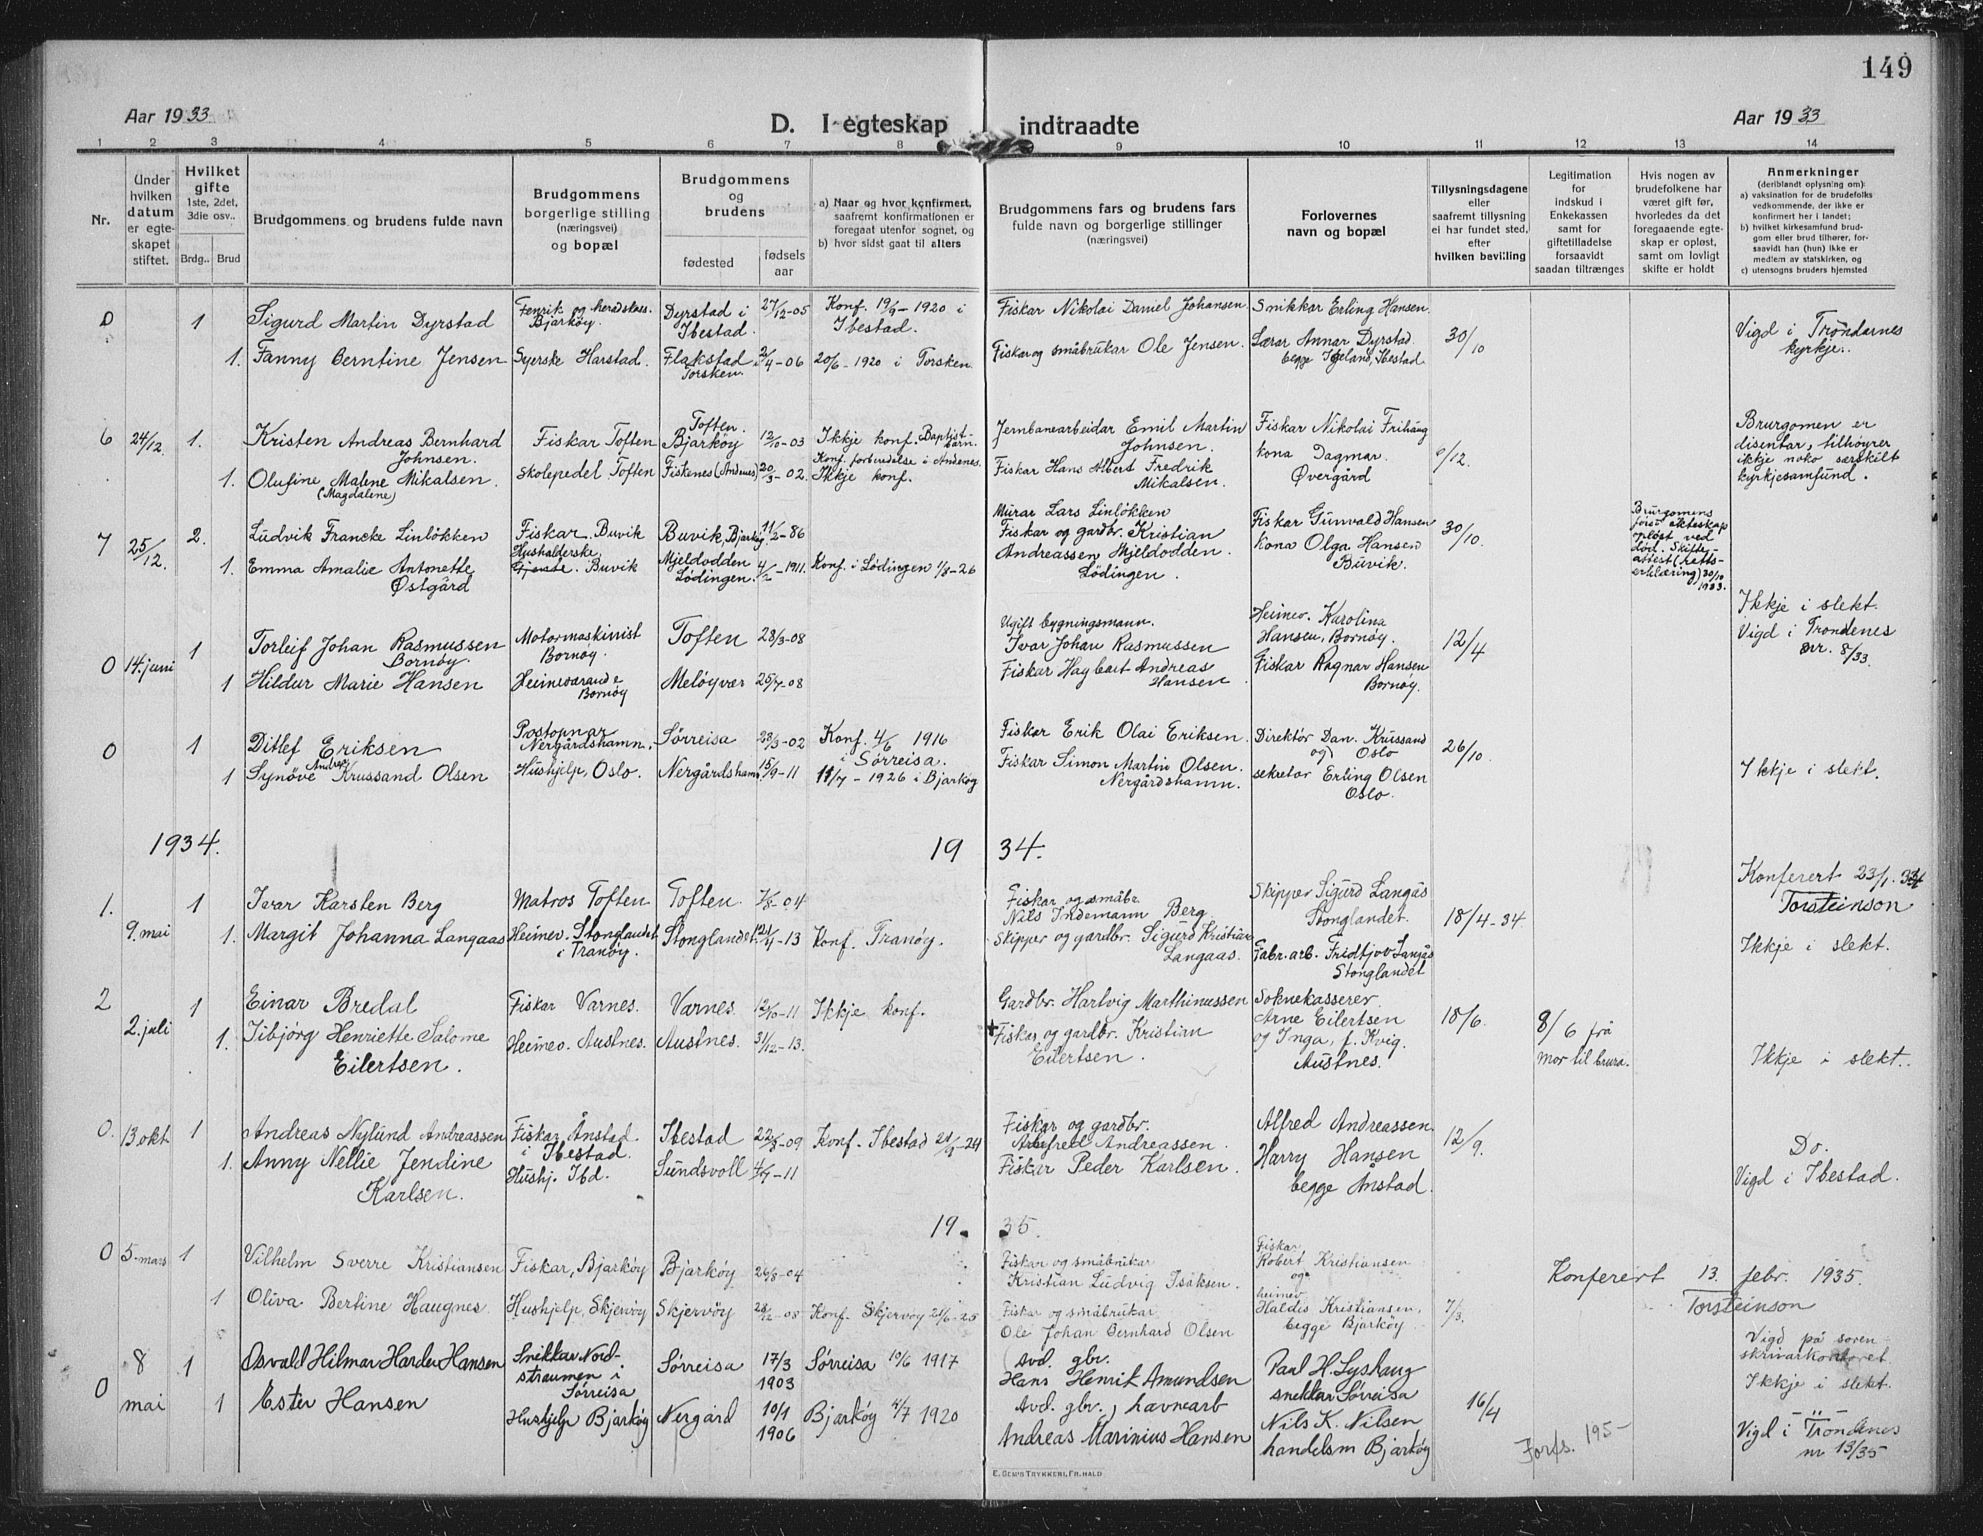 149
Aar 1933
D. I egteskap indtraadte
Aar 1933
1 2 3 4 5 6 7 8 9 10 11 12 13 14
Nr.
Under hvilken datum er egteskapet stiftet.
Hvilket gifte 1ste, 2det, 3die osv..
Brdg.. Brud
Brudgommens og brudens fulde navn
Brudgommens borgerlige stilling (næringsvei) og bopæl
Brudgommens og brudens
fødested
fødselsaar
a) Naar og hvor konfirmert, saafremt konfirmationen er foregaat utenfor sognet, og
b) hvor sidst gaat til alters
Brudgommens fars og brudens fars fulde navn og borgerlige stillinger (næringsvei)
Forlovernes navn og bopæl
Tillysningsdagene eller saafremt tillysning ei har fundet sted, efter hvilken bevilling
Legitimation for indskud i Enkekassen samt for giftetilladelse forsaavidt saadan tiltrænges
Hvis nogen av brudefolkene har været gift før, hvorledes da det foregaaende egteskap er opløst, samt om lovligt skifte er holdt
Anmerkninger (deriblandt oplysning om):
a) vaksination for de brudefolks vedkommende, der ikke er konfirmert her i landet;
b) hvilket kirkesamfund brudgom eller brud tilhører, forsaavidt han (hun) ikke er medlem av statskirken, og
c) utensogns bruders hjemsted
0 1 Sigurd Martin Dyrstad Fenrik og heradskass. Bjarkøy. Dyrstad i Ibestad. 27/12-05 Konf. 19/9-1920 i Ibestad. Fiskar Nikolai Daniel Johansen Snikkar Erling Hansen
1. Fanny Berntine Jensen Syerske Harstad. Flakstad Torsken. 2/4-06 20/6-1920 i Torsken. Fiskar og småbrukar Ole Jensen. Lærar Annar Dyrstad begge Igeland, Ibestad. 30/10 Vigd i Trondarnes kyrkje.
6 24/12. 1. Kristen Andreas Bernhard Johnsen. Fiskar Toften Toften. Bjarkøy 12/10-03 Ikkje konf. Baptist-barn. Jernbanearbeidar Emil Martin Johnsen. Fiskar Nikolai Frihaug
1. Olufine Malene Mikalsen. (Magdalene) Skolepedel Toften Fiskenes (Andenes) 20/3-02. Konf. forberedelse i Andenes. Ikkje konf. Fiskar Hans Albert Fredrik Mikalsen. kona Dagmar Øvergård 9/12. Brurgomen er disentar, tilhøyrer ikkje noko særskilt kyrkjesamfund.
7 25/12. 2. Ludvik Francke Linløkken Fiskar Buvik Buvik, Bjarkøy. 11/2-86 Murar Lars Linløkken Fiskar Gunvald Hansen
1. Emma Amalie Antonette Østgård Hushalderske Buvik Mjeldodden Lødingen. 4/2-1911. Konf. i Lødingen 1/8-26 Fiskar og gardbr. Kristian Andreassen Mjeldodden. Lødingen. Kona Olga Hansen Buvik. 30/10. Brurgomens førre ekteskap opløst ved død. Skifteattest (rettserklæring) 30/10 1933. Ikkje i slekt.
0 14. juni 1 Torleif Johan Rasmussen Bornøy. Motormaskinist Bornøy. Toften 28/3-08 Ugift bygningsmann. Ivar Johan Rasmussen Heimev. Karolina Hansen, Bornøy. 12/4 Vigd i Trondenes nr. 8/33.
1 Hildur Marie Hansen Heimeværande Bornøy Meløyvær 25/7-08 Fiskar Haybart Andreas Hansen Fiskar Ragnar Hansen Bornøy.
0 1 Ditlef Eriksen Postopnar Nergårdshamn. Sørreisa 28/3-02 Konf. 4/6 1916 i Sørreisa. Fiskar Erik Olai Eriksen Direktør Dan. Krussand og Oslo 26/10.
1 Synøve Andrea Krussand Olsen Hushjelp, Oslo. Nergårdshamn 15/9-11 11/7-1926 i Bjarkøy Fiskar Simon Martin Olsen. Nergårdshamn. sekretær Erling Olsen Oslo. Ikkje i slekt.
1934. 19 34.
Konferert 23/1. 34 Torsteinson
1. 9. mai 1 Ivar Karsten Berg Matros Toften Toften. 7/8-04 Fiskar og småbr. Nils Indemann Berg Skipper Sigurd Langås Stonglandet. 18/4-34
1. Margit Johanna Langaas Heimev. Stonglandet i Tranøy. Stonglandet. 24/4-13 Konf. Tranøy. Skipper og gardbr. Sigurd Kristian Langaas. Fabr.arb. Fridtjov Langås Stonglandet Ikkje i slekt.
2 2. juli 1 Einar Bredal Fiskar Varnes. Varnes. 12/10-11 Ikkje konf. Gardbr. Hartvig Marthinussen Soknekasserer Arne Eilertsen 18/6. 8/6 frå mor til brura.
1. Jibjörg Henriette Salome Eilertsen. Heimev. Austnes. Austnes. 31/12-13. + Fiskar og gardbr. Kristian Eilertsen. og Inga, f. Kvig. Austnes. Ikkje i slekt.
0. 13 okt 1 Andreas Nylund Andreassen Fiskar Ånstad i Ibestad. Ibestad 22/8-09 Konf. Ibestad 21/9-24 Fiskar og gardbr. Alfred Andreassen. Alfred Andreassen 12/9.
1. Anny Nellie Jendine Karlsen. Hushj. Ibd. Sundsvoll 4/7-11 Fiskar Peder Karlsen. Harry Hansen begge Ånstad. Do. Vigd i Ibestad.
19. 35.
0 5. mars 1 Vilhelm Sverre Kristiansen Fiskar, Bjarkøy Bjarkøy 26/8-04 Fiskar og småbrukar Kristian Ludvig Isaksen. Fiskar Robert Kristiansen og Konferert 13. febr. 1935. Torsteinson
1 Oliva Bertine Haugnes. Hushjelp, Skjervøy Skjervøy 28/12-08 Konf. Skjervøy 21/6-25 Fiskar og småbrukar Ole Johan Bernhard Olsen heimev. Haldis Kristiansen, begge Bjarkøy 7/3.
0 8 mai 1 Osvald Hilmar Harder Hansen Snikkar Nordstraumen i Sørreisa Sørreisa 17/3 1903 Sørreisa 10/6 1917 Avd. gbr. Hans Henrik Amundsen Paul H. Lyshaug snekkar Sørreisa 16/4 Vigd på sorenskrivarkontoret. Ikkje i slekt.
1 Ester Hansen Hushjelp Bjarkøy Nergård 10/1 1906 Bjarkøy 4/7 1920 Avd. gbr., havnearb Andreas Marinius Hansen Nils K. Nilsen handelsm Bjarkøy Forts. 195- Vigd i Trondenes nr 13/35
E. SEM'S TRYKKERI, FR.HALD